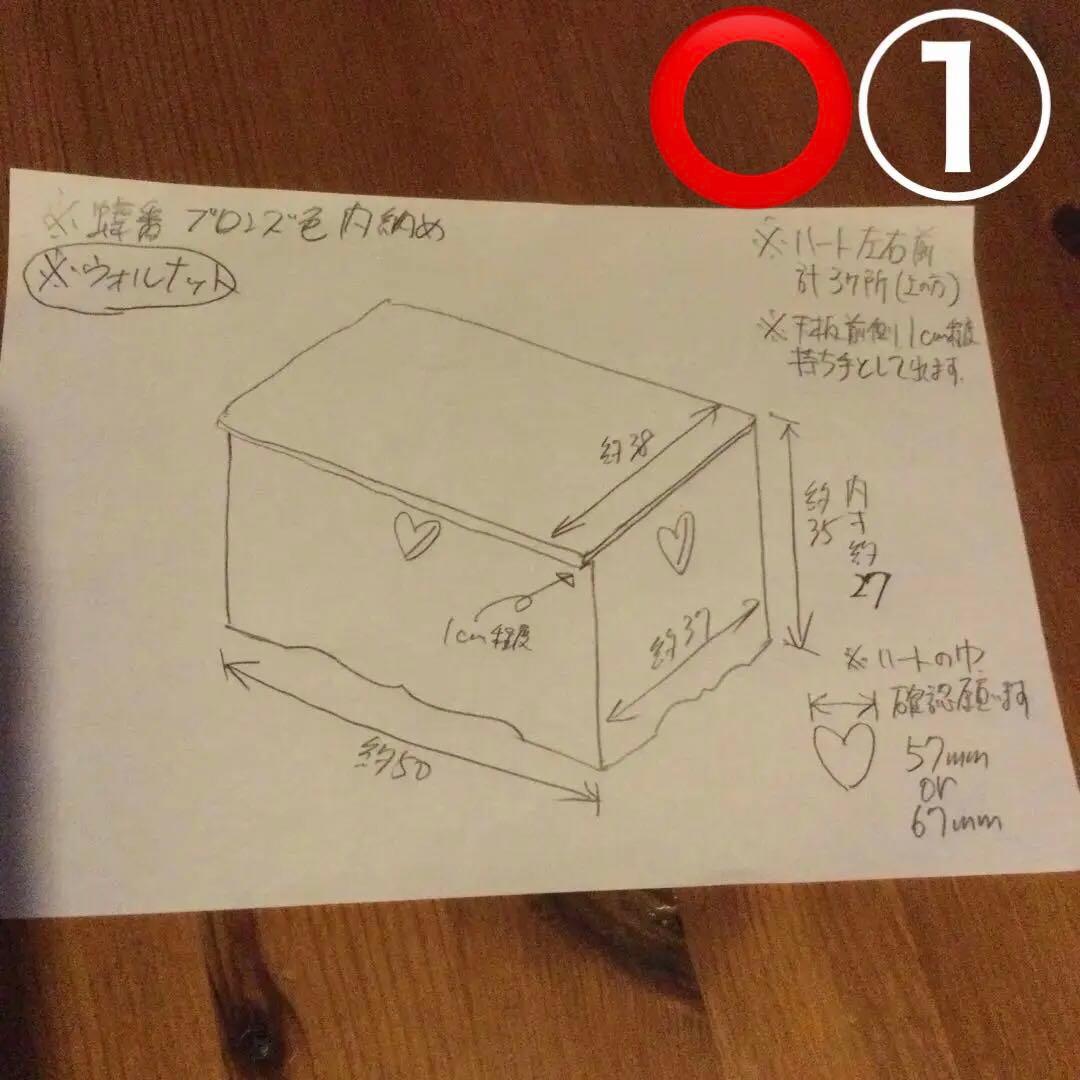 ①
※蝶番 ブロンズ色 内納め
※ウォルナット
※ハート左右前
計3ケ所(上の方)
※天板前側 1cm程度
持ち手として出ます。
約38
約35
内寸約27
1cm程度
約37
約50
※ハートの巾
確認願います
57mm
or
67mm